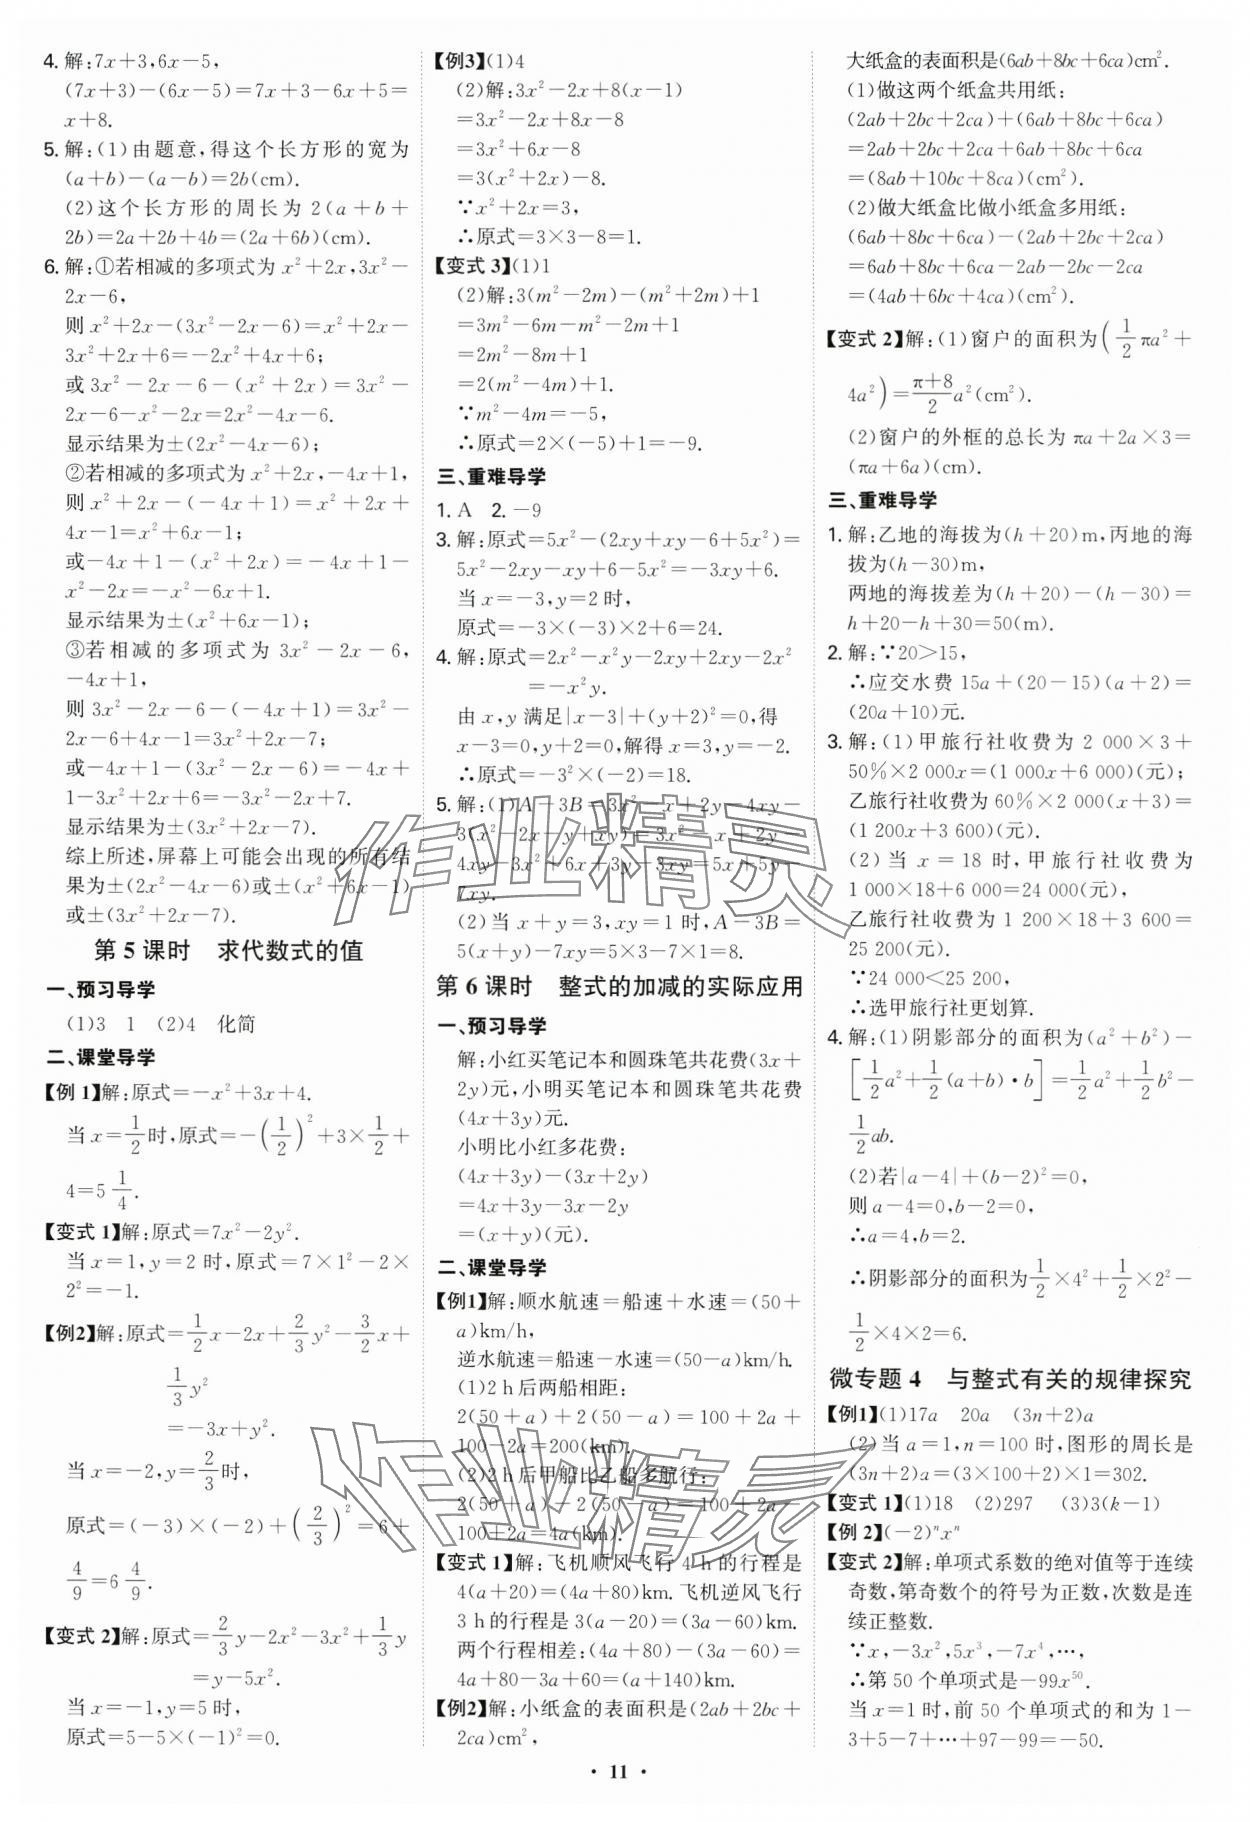 4. 解:7x+3,6x-5,
(7x+3)-(6x-5)=7x+3-6x+5=
x+8.
5. 解:(1)由题意,得这个长方形的宽为
(a+b)-(a-b)=2b(cm).
(2)这个长方形的周长为 2(a+b+
2b)=2a+2b+4b=(2a+6b)(cm).
6. 解:①若相减的多项式为 x²+2x,3x²-
2x-6,
则 x²+2x-(3x²-2x-6)=x²+2x-
3x²+2x+6=-2x²+4x+6;
或 3x²-2x-6-(x²+2x)=3x²-
2x-6-x²-2x=2x²-4x-6.
显示结果为±(2x²-4x-6);
②若相减的多项式为 x²+2x,-4x+1,
则 x²+2x-(-4x+1)=x²+2x+
4x-1=x²+6x-1;
或-4x+1-(x²+2x)=-4x+1-
x²-2x=-x²-6x+1.
显示结果为±(x²+6x-1);
③若相减的多项式为 3x²-2x-6,
-4x+1,
则 3x²-2x-6-(-4x+1)=3x²-
2x-6+4x-1=3x²+2x-7;
或-4x+1-(3x²-2x-6)=-4x+
1-3x²+2x+6=-3x²-2x+7.
显示结果为±(3x²+2x-7).
综上所述,屏幕上可能会出现的所有结
果为±(2x²-4x-6)或±(x²+6x-1)
或±(3x²+2x-7).
第 5 课时 求代数式的值
一、预习导学
(1)3 1 (2)4 化简
二、课堂导学
【例 1】解:原式=-x²+3x+4.
当 x=1/2时,原式=-(1/2)²+3×1/2+
4=5 1/4.
【变式 1】解:原式=7x²-2y².
当 x=1,y=2 时,原式=7×1²-2×
2²=-1.
【例2】解:原式=1/2x-2x+2/3y²-3/2x+
1/3y²
=-3x+y².
当 x=-2,y=2/3时,
原式=(-3)×(-2)+(2/3)²=6+
4/9=6 4/9.
【变式 2】解:原式=2/3y-2x²-3x²+1/3y
=y-5x².
当 x=-1,y=5 时,
原式=5-5×(-1)²=0.
【例3】(1)4
(2)解:3x²-2x+8(x-1)
=3x²-2x+8x-8
=3x²+6x-8
=3(x²+2x)-8.
∵x²+2x=3,
∴原式=3×3-8=1.
【变式 3】(1)1
(2)解:3(m²-2m)-(m²+2m)+1
=3m²-6m-m²-2m+1
=2m²-8m+1
=2(m²-4m)+1.
∵m²-4m=-5,
∴原式=2×(-5)+1=-9.
三、重难导学
1. A 2. -9
3. 解:原式=5x²-(2xy+xy-6+5x²)=
5x²-2xy-xy+6-5x²=-3xy+6.
当 x=-3,y=2 时,
原式=-3×(-3)×2+6=24.
4. 解:原式=2x²-x²y-2xy+2xy-2x²
=-x²y.
由 x,y 满足|x-3|+(y+2)²=0,得
x-3=0,y+2=0,解得 x=3,y=-2.
∴原式=-3²×(-2)=18.
5. 解:(1)A-3B=3x²-x+2y-4xy-
3(x²-2x-y+xy)=3x²-x+2y-
4xy-3x²+6x+3y-3xy=5x+5y-
7xy.
(2)当 x+y=3,xy=1 时,A-3B=
5(x+y)-7xy=5×3-7×1=8.
第 6 课时 整式的加减的实际应用
一、预习导学
解:小红买笔记本和圆珠笔共花费(3x+
2y)元,小明买笔记本和圆珠笔共花费
(4x+3y)元.
小明比小红多花费:
(4x+3y)-(3x+2y)
=4x+3y-3x-2y
=(x+y)(元).
二、课堂导学
【例1】解:顺水航速=船速+水速=(50+
a)km/h,
逆水航速=船速-水速=(50-a)km/h.
(1)2 h后两船相距:
2(50+a)+2(50-a)=100+2a+
100-2a=200(km).
(2)2 h后甲船比乙船多航行:
2(50+a)-2(50-a)=100+2a-
100+2a=4a(km).
【变式 1】解:飞机顺风飞行 4 h的行程是
4(a+20)=(4a+80)km.飞机逆风飞行
3 h的行程是 3(a-20)=(3a-60)km.
两个行程相差:(4a+80)-(3a-60)=
4a+80-3a+60=(a+140)km.
【例2】解:小纸盒的表面积是(2ab+2bc+
2ca)cm²,
大纸盒的表面积是(6ab+8bc+6ca)cm².
(1)做这两个纸盒共用纸:
(2ab+2bc+2ca)+(6ab+8bc+6ca)
=2ab+2bc+2ca+6ab+8bc+6ca
=(8ab+10bc+8ca)(cm²).
(2)做大纸盒比做小纸盒多用纸:
(6ab+8bc+6ca)-(2ab+2bc+2ca)
=6ab+8bc+6ca-2ab-2bc-2ca
=(4ab+6bc+4ca)(cm²).
【变式 2】解:(1)窗户的面积为(1/2πa²+
4a²)=(π+8)/2a²(cm²).
(2)窗户的外框的总长为 πa+2a×3=
(πa+6a)(cm).
三、重难导学
1. 解:乙地的海拔为(h+20)m,丙地的海
拔为(h-30)m,
两地的海拔差为(h+20)-(h-30)=
h+20-h+30=50(m).
2. 解:∵20>15,
∴应交水费 15a+(20-15)(a+2)=
(20a+10)元.
3. 解:(1)甲旅行社收费为 2 000×3+
50%×2 000x=(1 000x+6 000)(元);
乙旅行社收费为 60%×2 000(x+3)=
(1 200x+3 600)(元).
(2)当 x=18 时,甲旅行社收费为
1 000×18+6 000=24 000(元),
乙旅行社收费为 1 200×18+3 600=
25 200(元).
∵24 000<25 200,
∴选甲旅行社更划算.
4. 解:(1)阴影部分的面积为(a²+b²)-
[1/2a²+1/2(a+b)·b]=1/2a²+1/2b²-
1/2ab.
(2)若|a-4|+(b-2)²=0,
则 a-4=0,b-2=0,
∴a=4,b=2.
∴阴影部分的面积为1/2×4²+1/2×2²-
1/2×4×2=6.
微专题 4 与整式有关的规律探究
【例1】(1)17a 20a (3n+2)a
(2)当 a=1,n=100 时,图形的周长是
(3n+2)a=(3×100+2)×1=302.
【变式 1】(1)18 (2)297 (3)3(k-1)
【例 2】(-2)ⁿxⁿ
【变式 2】解:单项式系数的绝对值等于连续
奇数,第奇数个的符号为正数,次数是连
续正整数.
∵x,-3x²,5x³,-7x⁴,…,
∴第 50 个单项式是-99x⁵⁰.
当 x=1 时,前 50 个单项式的和为 1-
3+5-7+…+97-99=-50.
· 11 ·
作业精灵
作业精灵